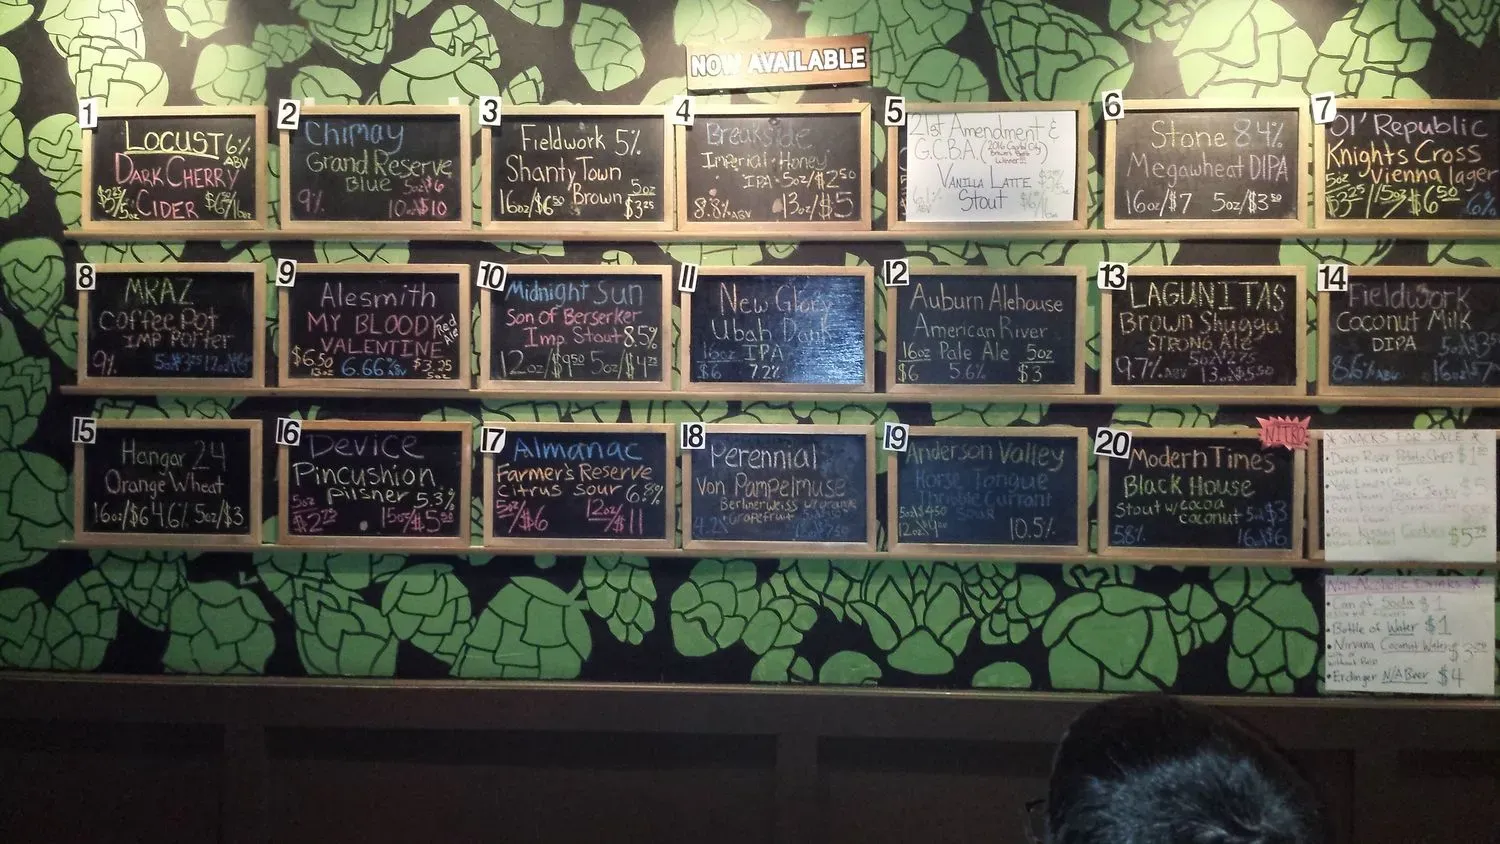 NOW AVAILABLE
1
LOCUST 6%
ABV
DARK CHERRY
CIDER
2
Chimay
Grand Reserve
Blue 5oz/$6
9% 10oz/$10
3
Fieldwork 5%
Shanty Town
Brown
16oz/$6 5oz $3.25
4
Breakside
Imperial Honey
IPA 5oz/$2.50
8.8% ABV 13oz/$5
5
21st Amendment &
G.C.B.A.
Winner!!!
Vanilla Latte
Stout
6
Stone 8.4%
Megawheat DIPA
16oz/$7 5oz/$3.50
7
Ol' Republic
Knights Cross
Vienna lager
5oz $3.25 / 15oz/$6.50 6%
8
MRAZ
Coffee Pot
IMP Porter
9%
9
Alesmith
MY BLOODY
Red Ale
VALENTINE
$6.50 6.66% ABV $3.25
5oz
10
Midnight Sun
Son of Berserker
Imp Stout 8.5%
12oz/$9.50 5oz/$4.75
11
New Glory
Ubah Dank
16oz IPA
$6 7.2%
12
Auburn Alehouse
American River
16oz Pale Ale 5oz
$6 5.6% $3
13
LAGUNITAS
Brown Shugga
STRONG Ale
9.7% ABV 13oz $5.50
14
Fieldwork
Coconut Milk
DIPA
8.6% ABV 16oz/$7
15
Hangar 24
Orange Wheat
16oz/$6 4.6% 5oz/$3
16
Device
Pincushion
Pilsner 5.3%
5oz/$2.75 15oz/$5.50
17
Almanac
Farmer's Reserve
Citrus Sour 6.8%
5oz/$6 12oz/$11
18
Perennial
Von Pampelmuse
Berlinerweiss w/orange
+Grapefruit
19
Anderson Valley
Horse Tongue
Thribble Currant
Sour
10.5%
20
NITRO
Modern Times
Black House
Stout w/cocoa
coconut 5oz $3
5.8% 16oz $6
* SNACKS FOR SALE *
• Deep River Potato Chips $1
$5
Non-Alcoholic Drinks *
• Can of Soda $1
• Bottle of Water $1
• Nirvana Coconut Water
without Pulp
• Erdinger N/A Beer $4